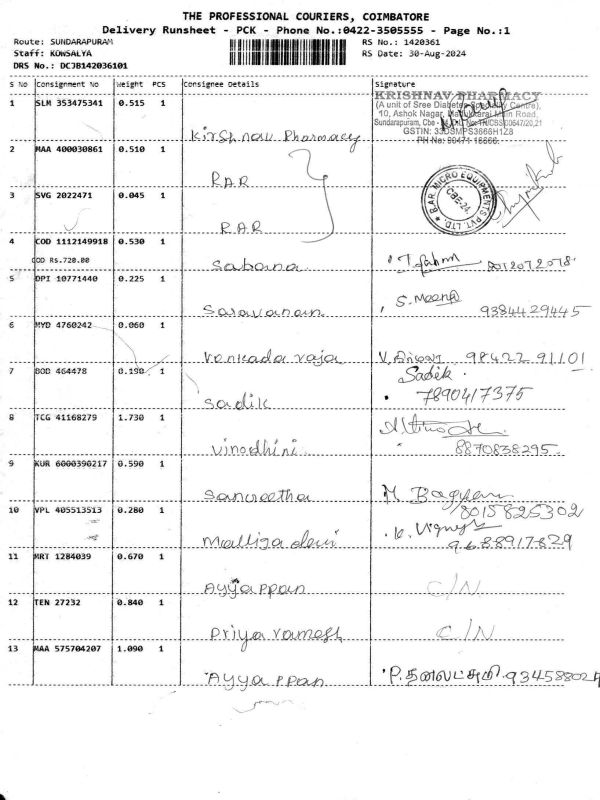 THE PROFESSIONAL COURIERS, COIMBATORE
Delivery Runsheet - PCK - Phone No.:0422-3505555 - Page No.:1
Route: SUNDARAPURAM RS No.: 1420361
Staff: KOWSALYA RS Date: 30-Aug-2024
DRS No.: DC7B142036101
S No Consignment No Weight PCS Consignee Details Signature
KRISHNAV PHARMACY
(A unit of Sree Diabetes Specialty Centre),
1 SLM 353475341 0.515 1
10, Ashok Nagar, Madukkarai Main Road,
Sundarapuram, Cbe
GSTIN: 33DSMPS3668H1Z8
Kirshnav Pharmacy PH No: 90471 18666.
2 MAA 400030861 0.510 1
RAR
R.AR. MICRO EQUIPMENTS PVT. LTD.
CBE-24.
3 SVG 2022471 0.045 1
RAR
4 COD 1112149918 0.530 1
COD Rs.720.00 Sabana
5 DPI 10771440 0.225 1
S. Meena
Saravanan 9384429445
6 MYD 4760242 0.060 1
Venkada raja 98422 91101
7 BOD 464478 0.190 1
Sadik.
7890417375
Sadik
8 TCG 41168279 1.730 1
Vinodhini 8870838295
9 KUR 6000390217 0.590 1
Sangeetha
8015825302
10 VPL 405513513 0.280 1
K. Vignesh
Malliga devi 9688917829
11 MRT 1284039 0.670 1
Ayyappan C/N
12 TEN 27232 0.840 1
Priya ramesh C/N
13 MAA 575704207 1.090 1
Ayyappan